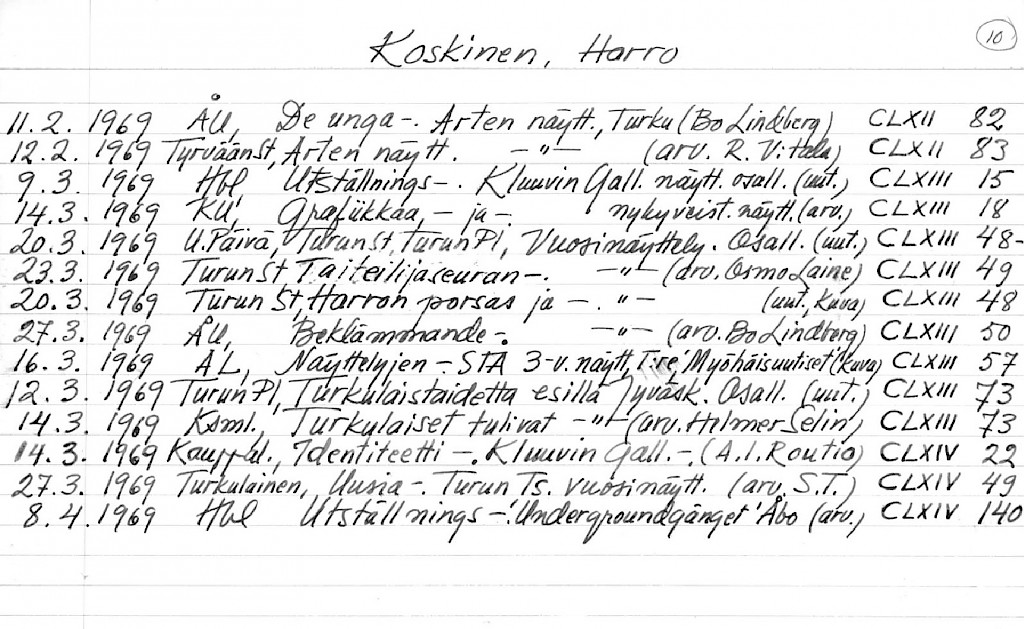 10
Koskinen, Harro
11.2. 1969 ÅU, De unga-. Arten näytt., Turku (Bo Lindberg) CLXII 82
12.2. 1969 TyrväänSt, Arten näytt. -"- (arv. R. Vitala) CLXII 83
9.3. 1969 Hbl Utställnings-. Kluuvin Gall. näytt. osall. (uut.) CLXIII 15
14.3. 1969 KU, Grafiikkaa, - ja -. nykyveist. näytt. (arv.) CLXIII 18
20.3. 1969 U.Päivä, TurunSt, TurunPl, Vuosinäyttely. Osall. (uut.) CLXIII 48-
23.3. 1969 TurunSt Taiteilijaseuran-. -"- (arv. Osmo Laine) CLXIII 49
20.3. 1969 Turun St, Harron porsas ja -. -"- (uut, kuva) CLXIII 48
27.3. 1969 ÅU, Beklämmande-. -"- (arv. Bo Lindberg) CLXIII 50
16.3. 1969 AL, Näyttelyjen - STA 3-v. näytt, T:re, 'Myöhäisuutiset' (kuva) CLXIII 57
12.3. 1969 TurunPl, Turkulaistaidetta esillä Jyväsk. Osall. (uut.) CLXIII 73
14.3. 1969 Ksml., Turkulaiset tulivat -"- (arv. Hilmer Selin) CLXIII 73
14.3. 1969 Kauppal., Identiteetti -. Kluuvin Gall. -. (A.I. Routio) CLXIV 22
27.3. 1969 Turkulainen, Uusia -. Turun Ts. vuosinäytt. (arv. S.T.) CLXIV 49
8.4. 1969 Hbl Utställnings -. 'Undergroundgänget' Åbo (arv.) CLXIV 140